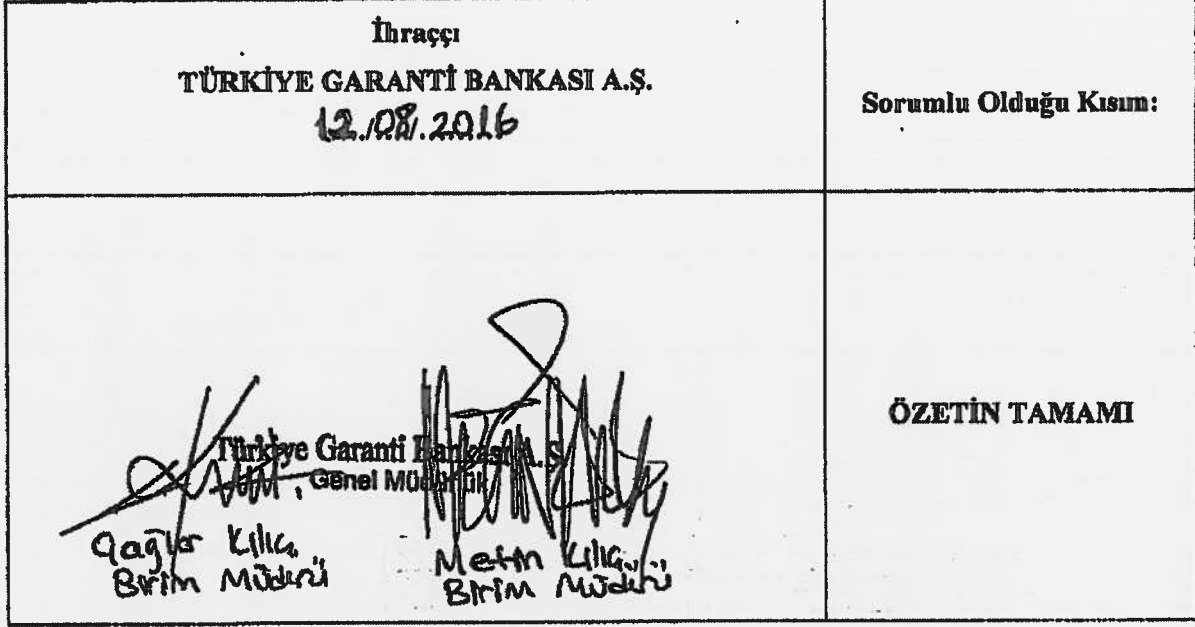 İhraççı
TÜRKİYE GARANTİ BANKASI A.Ş.
12.08.2016
Sorumlu Olduğu Kısım:
ÖZETİN TAMAMI
Türkiye Garanti Bankası A.Ş.
Genel Müdürlük
Çağlar Kılıç
Birim Müdürü
Metin Kılıç
Birim Müdürü